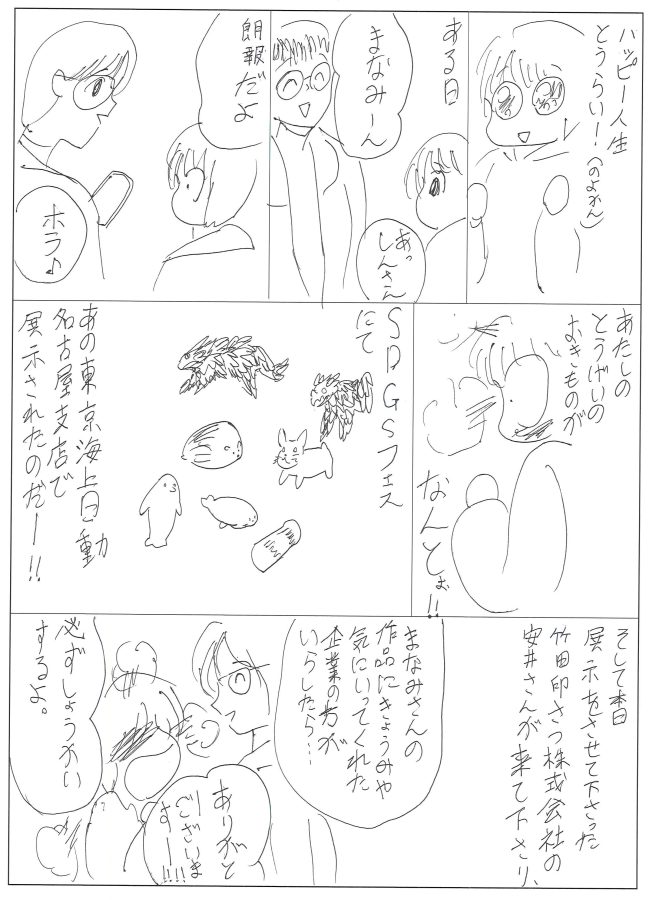 ハッピー人生
とうらい!(のよかん)
ある日
まなみーん
あっ
しんさん
朗報だよ
ホラ♪
あたしの
とうげいの
おきものが
なんとぉ!!
SDGSフェス
にて
あの東京海上日動
名古屋支店で
展示されたのだー!!
そして本日
展示をさせて下さった
竹田印さつ株式会社の
安井さんが来て下さり、
まなみさんの
作品にきょうみや
気にいってくれた
企業の方が
いらしたら…
必ずしょうかい
するよ。
ありがと
ございま
すー!!!!